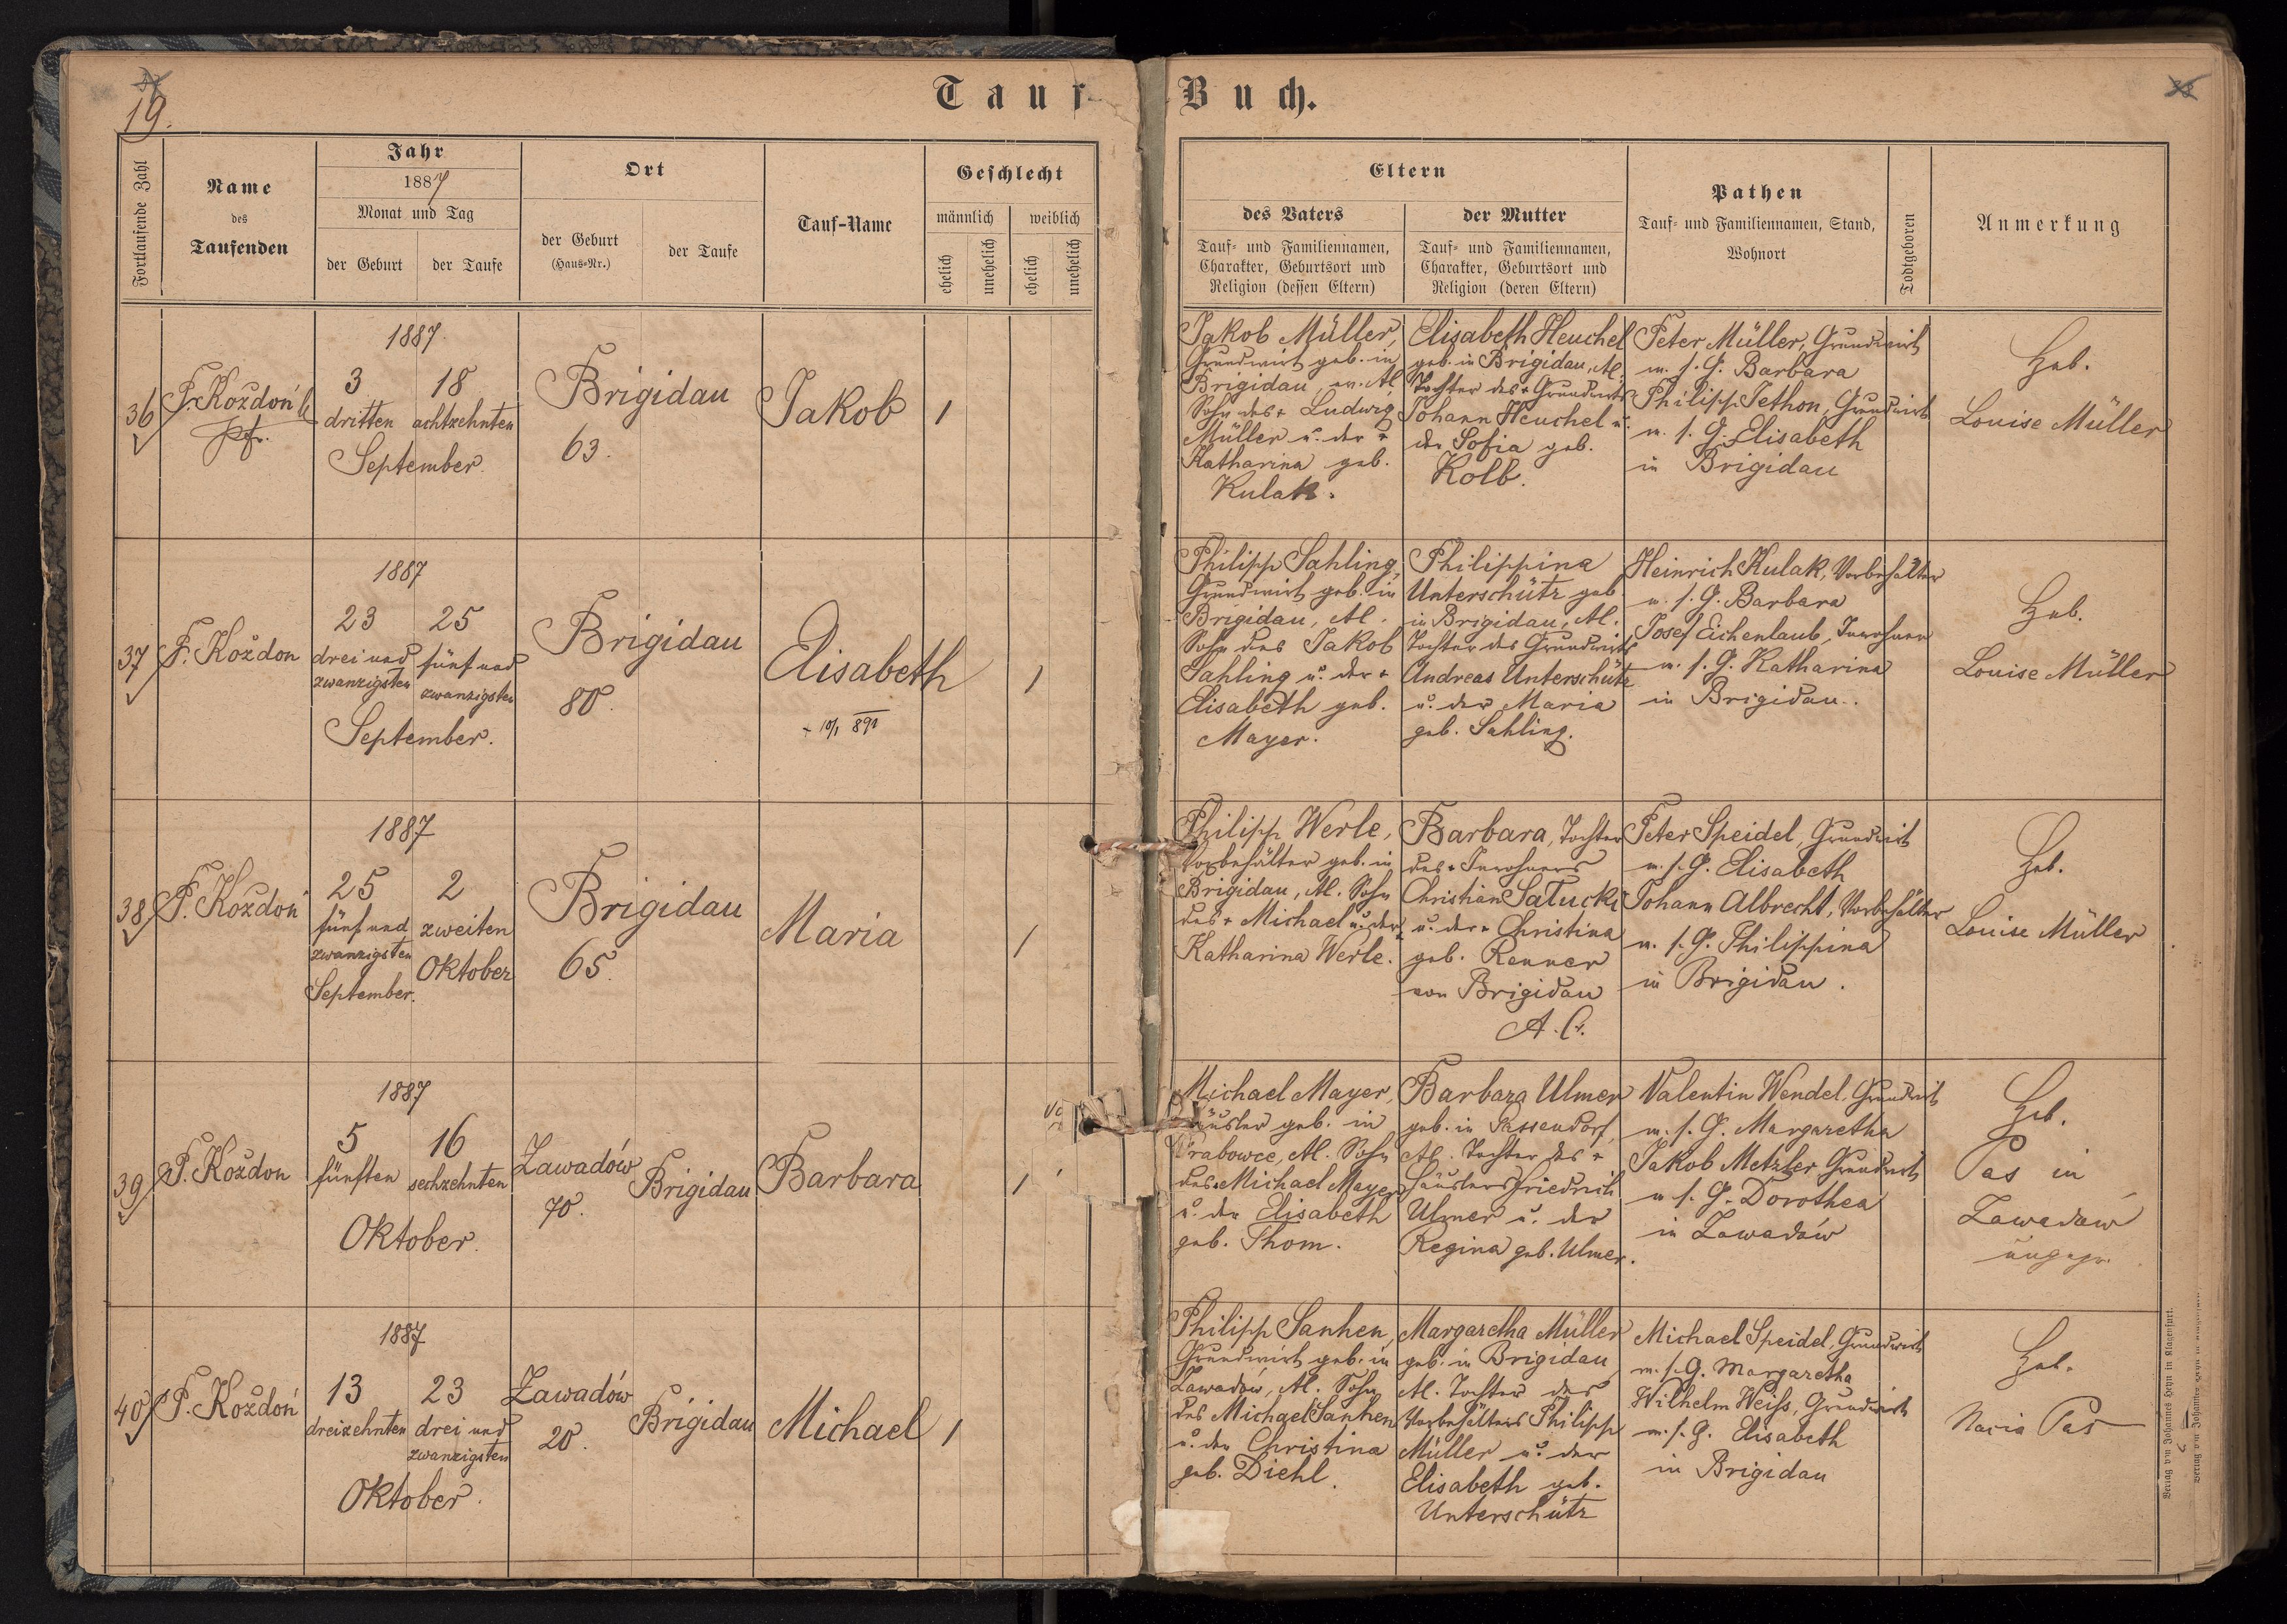 19.
Tauf-Buch.
Fortlaufende Zahl
Name
des
Taufenden
Jahr
1887
Monat und Tag
der Geburt
der Taufe
Ort
der Geburt
(Haus-Nr.)
der Taufe
Tauf-Name
Geschlecht
männlich
weiblich
ehelich
unehelich
ehelich
unehelich
Eltern
des Vaters
Tauf- und Familiennamen,
Charakter, Geburtsort und
Religion (dessen Eltern)
der Mutter
Tauf- und Familiennamen,
Charakter, Geburtsort und
Religion (deren Eltern)
Pathen
Tauf- und Familiennamen, Stand,
Wohnort
Todtgeboren
Anmerkung
36
F. Koždoń
Pfr.
1887
3
dritten
18
achtzehnten
September.
Brigidau
63.
Jakob
1
Jakob Müller,
Grundwirt geb. in
Brigidau, ev. A.
Sohn des + Ludwig
Müller u. der +
Katharina geb.
Kulak.
Elisabeth Heuchel
geb. in Brigidau, A.
Tochter des + Grundwirts
Johann Heuchel u.
der Sofia geb.
Kolb.
Peter Müller, Grundwirt
m. s. G. Barbara
Philipp Jethon, Grundwirt
m. s. G. Elisabeth
in Brigidau
Heb.
Louise Müller
37
F. Koždon
1887
23
drei und
zwanzigsten
25
fünf und
zwanzigsten
September.
Brigidau
80.
Elisabeth
1
Philipp Sahling,
Grundwirt geb. in
Brigidau, A.
Sohn des Jakob
Sahling u. der +
Elisabeth geb.
Mayer.
Philippina
Unterschütz geb.
in Brigidau, A.
Tochter des Grundwirts
Andreas Unterschütz
u. der Maria
geb. Sahling.
Heinrich Kulak, Vorbehälter
m. s. G. Barbara
Josef Eichenlaub, Inwohner
m. s. G. Katharina
in Brigidau.
Heb.
Louise Müller
38
F. Koždoń
1887
25
fünf und
zwanzigsten
September.
2
zweiten
Oktober
Brigidau
65.
Maria
1
Philipp Werle,
Vorbehälter geb. in
Brigidau, A. Sohn
des + Michael u. der +
Katharina Werle.
Barbara, Tochter
des + Inwohners
Christian Satucki
u. der + Christina
geb. Renner
von Brigidau
A. C.
Peter Speidel, Grundwirt
m. s. G. Elisabeth
Johann Albrecht, Vorbehälter
m. s. G. Philippina
in Brigidau.
Heb.
Louise Müller
39
F. Koždon
1887
5
fünften
16
sechzehnten
Oktober.
Zawadów
70.
Brigidau
Barbara
1
Michael Mayer,
Häusler geb. in
Grabowce, A. Sohn
des + Michael Mayer
u. der Elisabeth
geb. Thom.
Barbara Ulmer
geb. in Ugartsberg
A. Tochter des +
Häuslers Friedrich
Ulmer u. der
Regina geb. Ulmer.
Valentin Wendel, Grundwirt
m. s. G. Margaretha
Jakob Metzler Grundwirt
m. s. G. Dorothea
in Zawadów
Heb.
Pas in
Zawadów
ungepr.
40
F. Koždoń
1887
13
dreizehnten
23
drei und
zwanzigsten
Oktober.
Zawadów
20.
Brigidau
Michael
1
Philipp Sanhen,
Grundwirt geb. in
Zawadów, A. Sohn
des Michael Sanhen
u. der Christina
geb. Diehl.
Margaretha Müller
geb. in Brigidau,
A. Tochter des
Vorbehälters Philipp
Müller u. der
Elisabeth geb.
Unterschütz
Michael Speidel, Grundwirt
m. s. G. Margaretha
Wilhelm Weiss, Grundwirt
m. s. G. Elisabeth
in Brigidau
Heb.
Maria Pas
Verlag von Johannes Heyn in Klagenfurt.